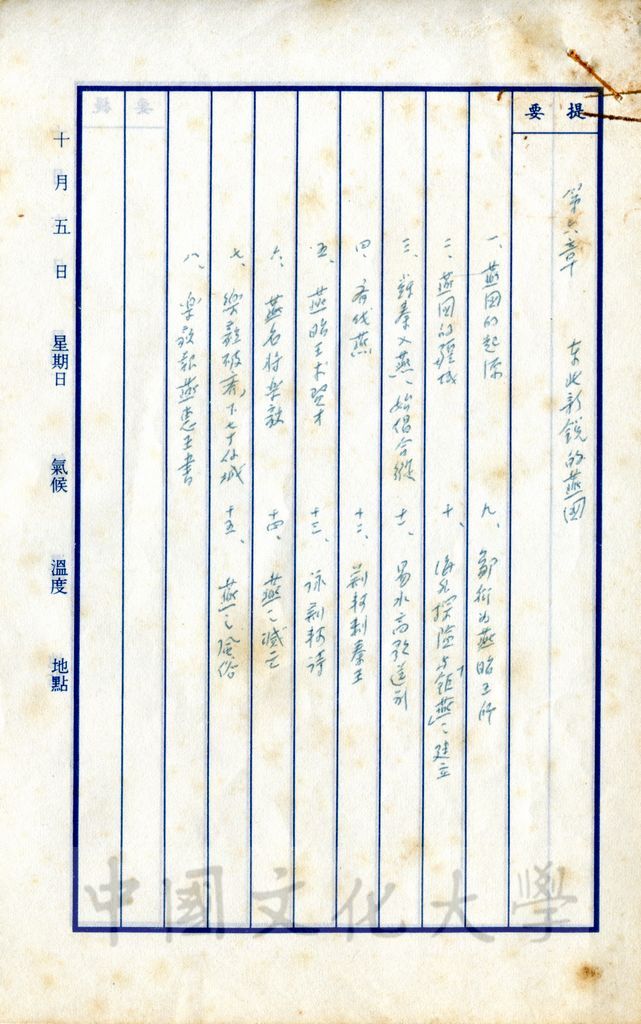 提要
第六章 东北新銳的燕国
一、燕国的起源
二、燕国的疆域
三、蘇秦入燕、始倡合縱
四、齐伐燕
五、燕昭王求賢才
六、燕名将樂毅
七、樂毅破齐、下七十餘城
八、樂毅報燕惠王書
九、鄒衍为燕昭王師
十、海外探險与「鉅燕」之建立
十一、易水高歌送别
十二、荆軻刺秦王
十三、咏荆軻诗
十四、燕之滅亡
十五、燕之風俗
十月五日 星期日 氣候 溫度 地點
中國文化大學